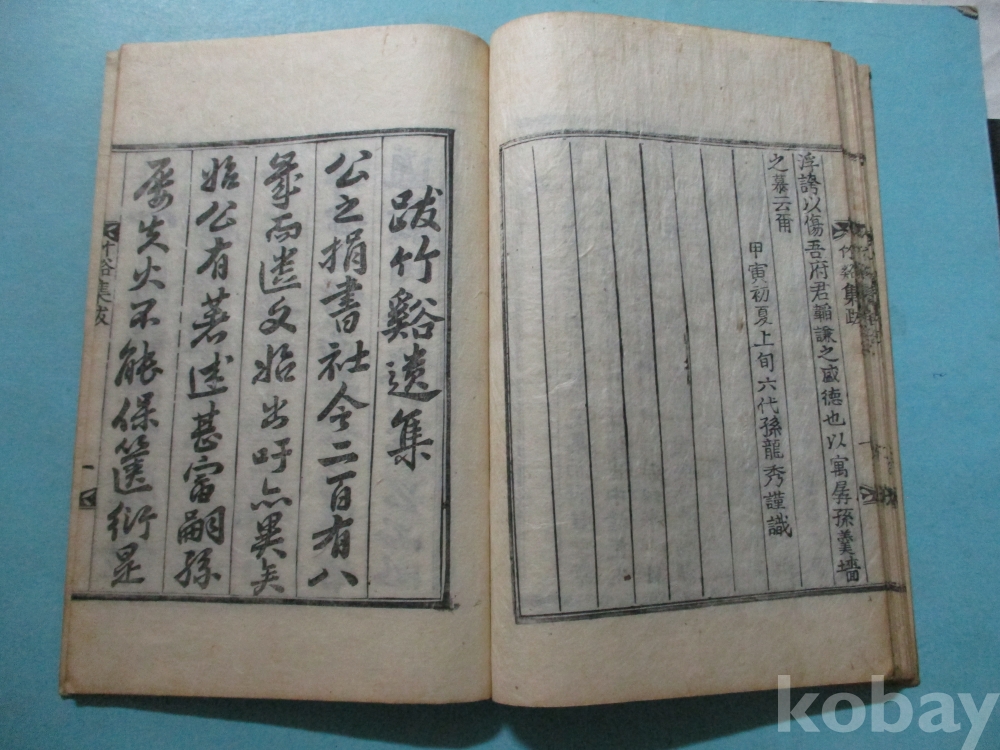 浮誇以傷吾府君韜謙之盛德也以寓孱孫羹墻
之慕云爾
甲寅初夏上旬六代孫龍秀謹識
跋竹谿遺集
公之捐書社今二百有八
箞而遺文始出吁亦異矣
始公有著述甚富嗣孫
屡失火不能保篋衍是
竹谷集跋
一
kobay